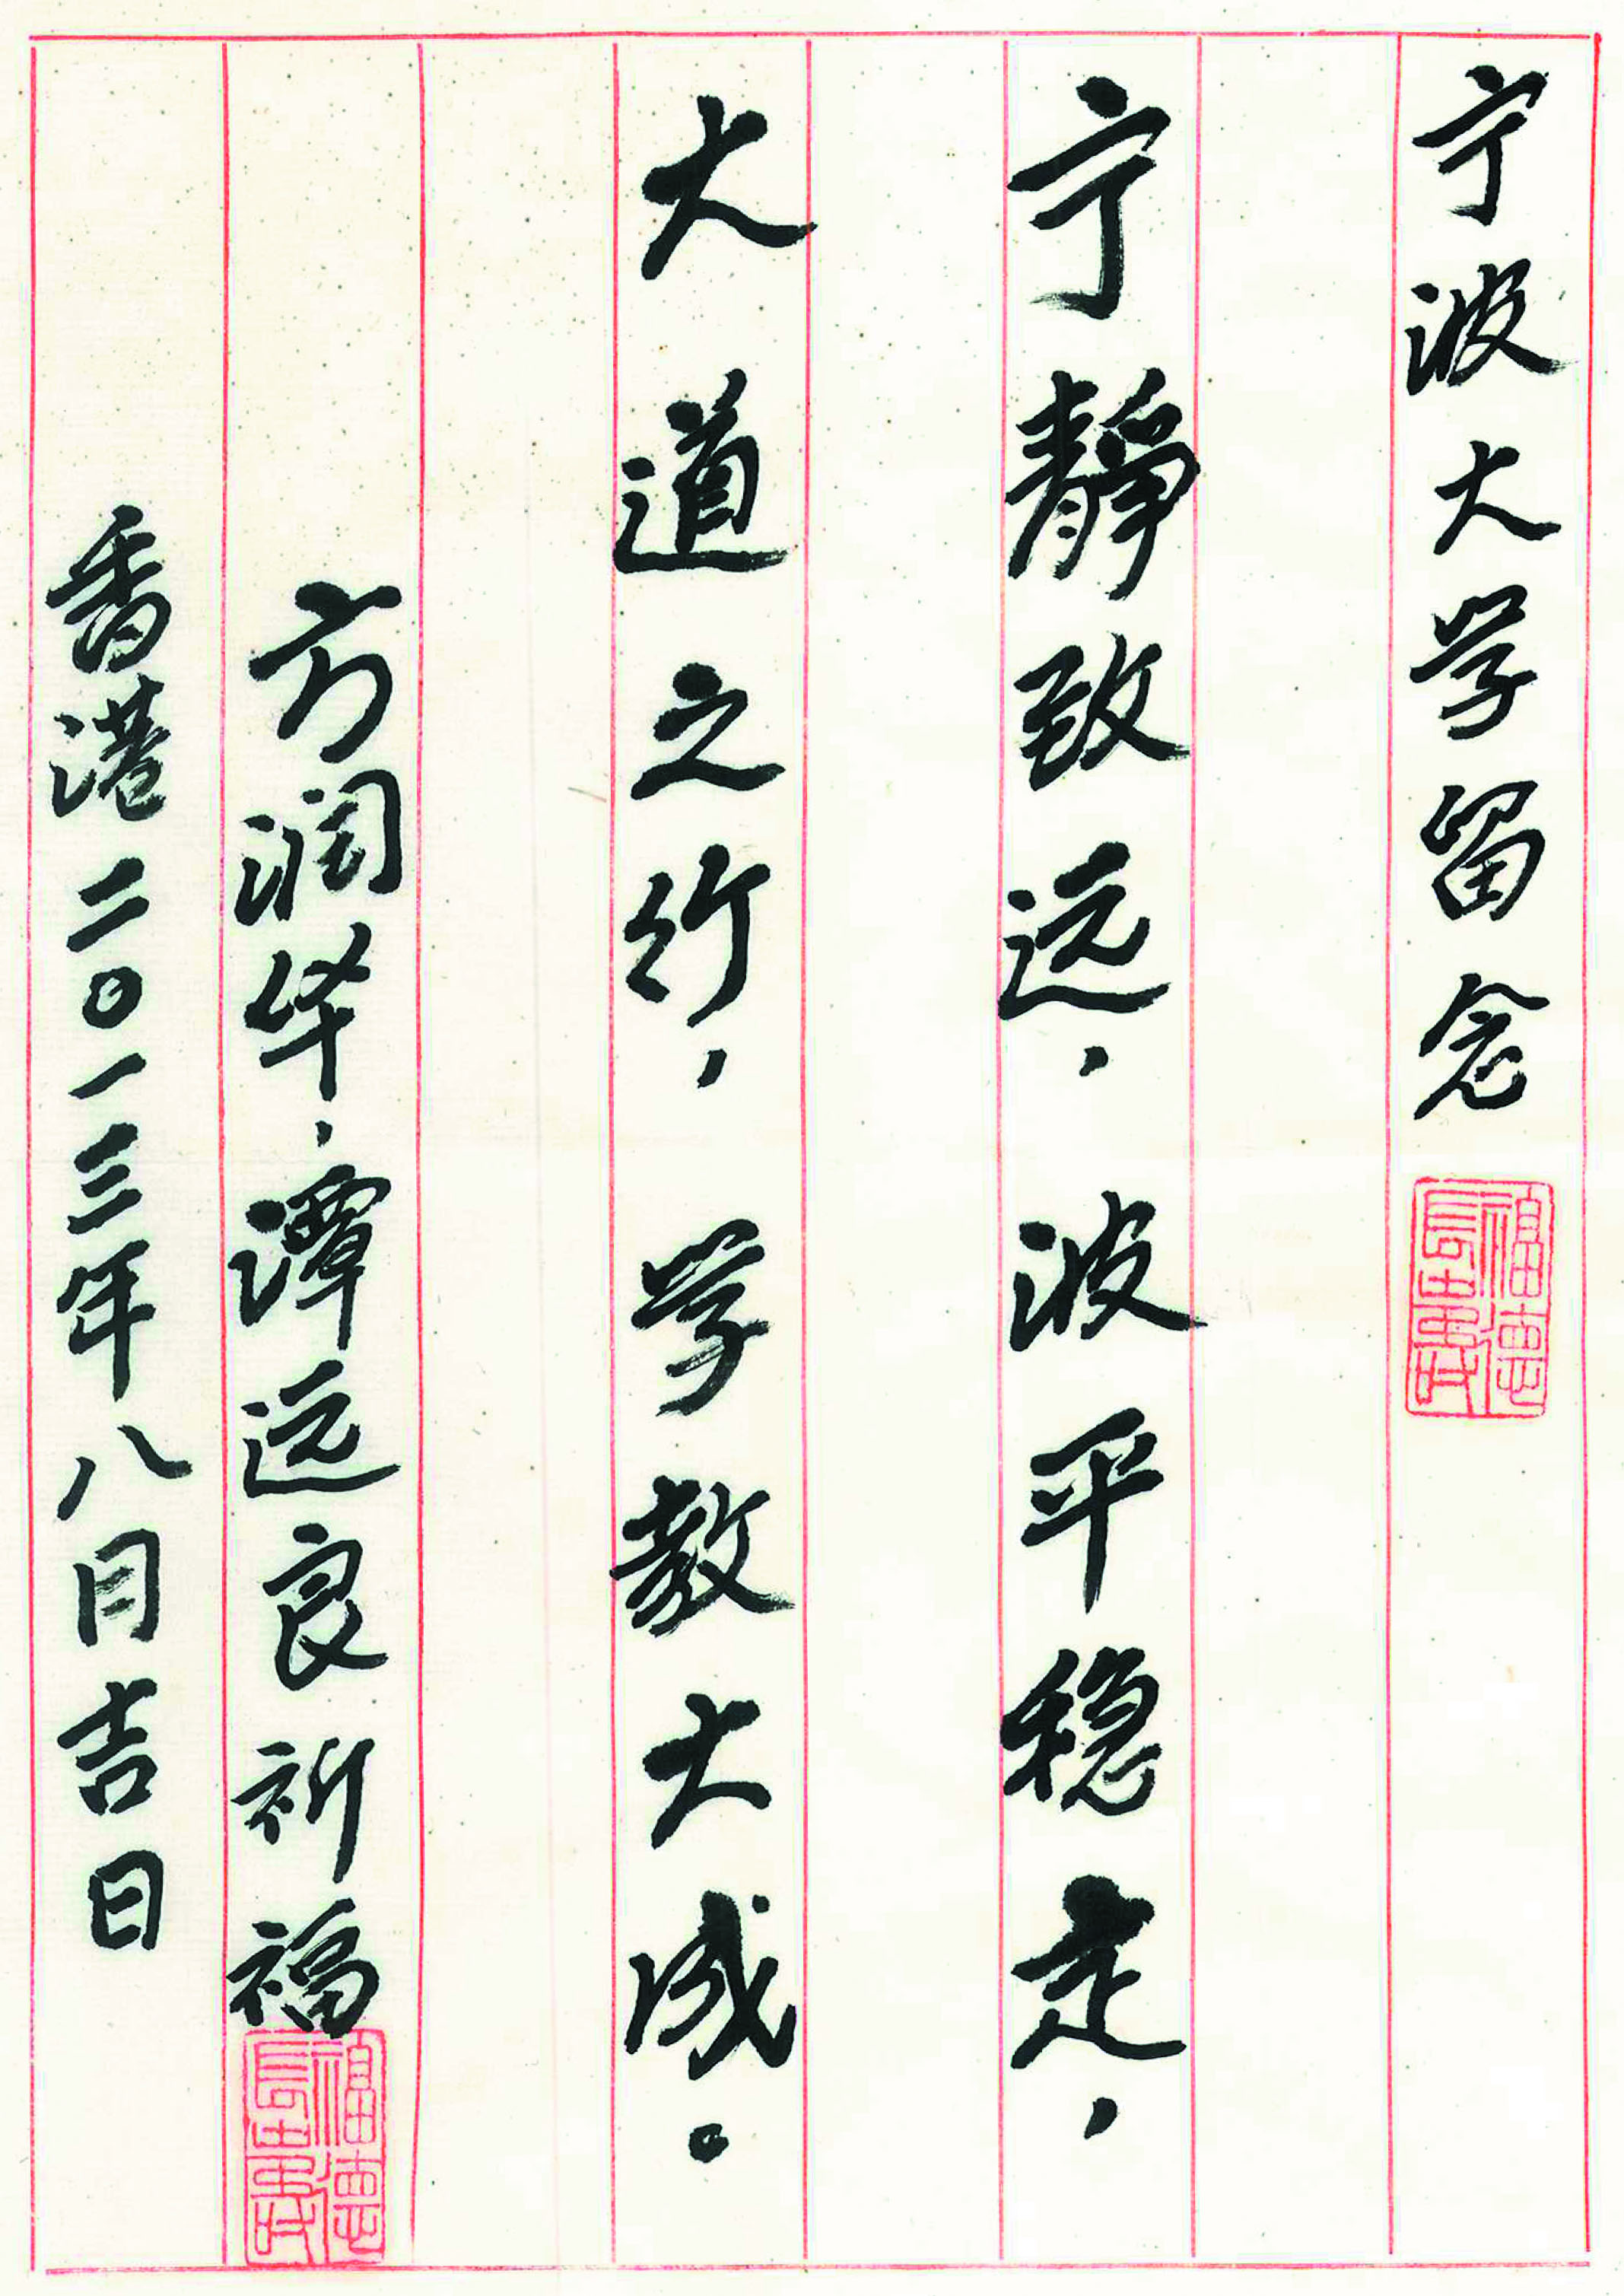 宁波大学留念
宁靜致远，波平稳走，
大道之行，学教大成。
方润华，谭远良祈福
香港二〇一三年八月吉日